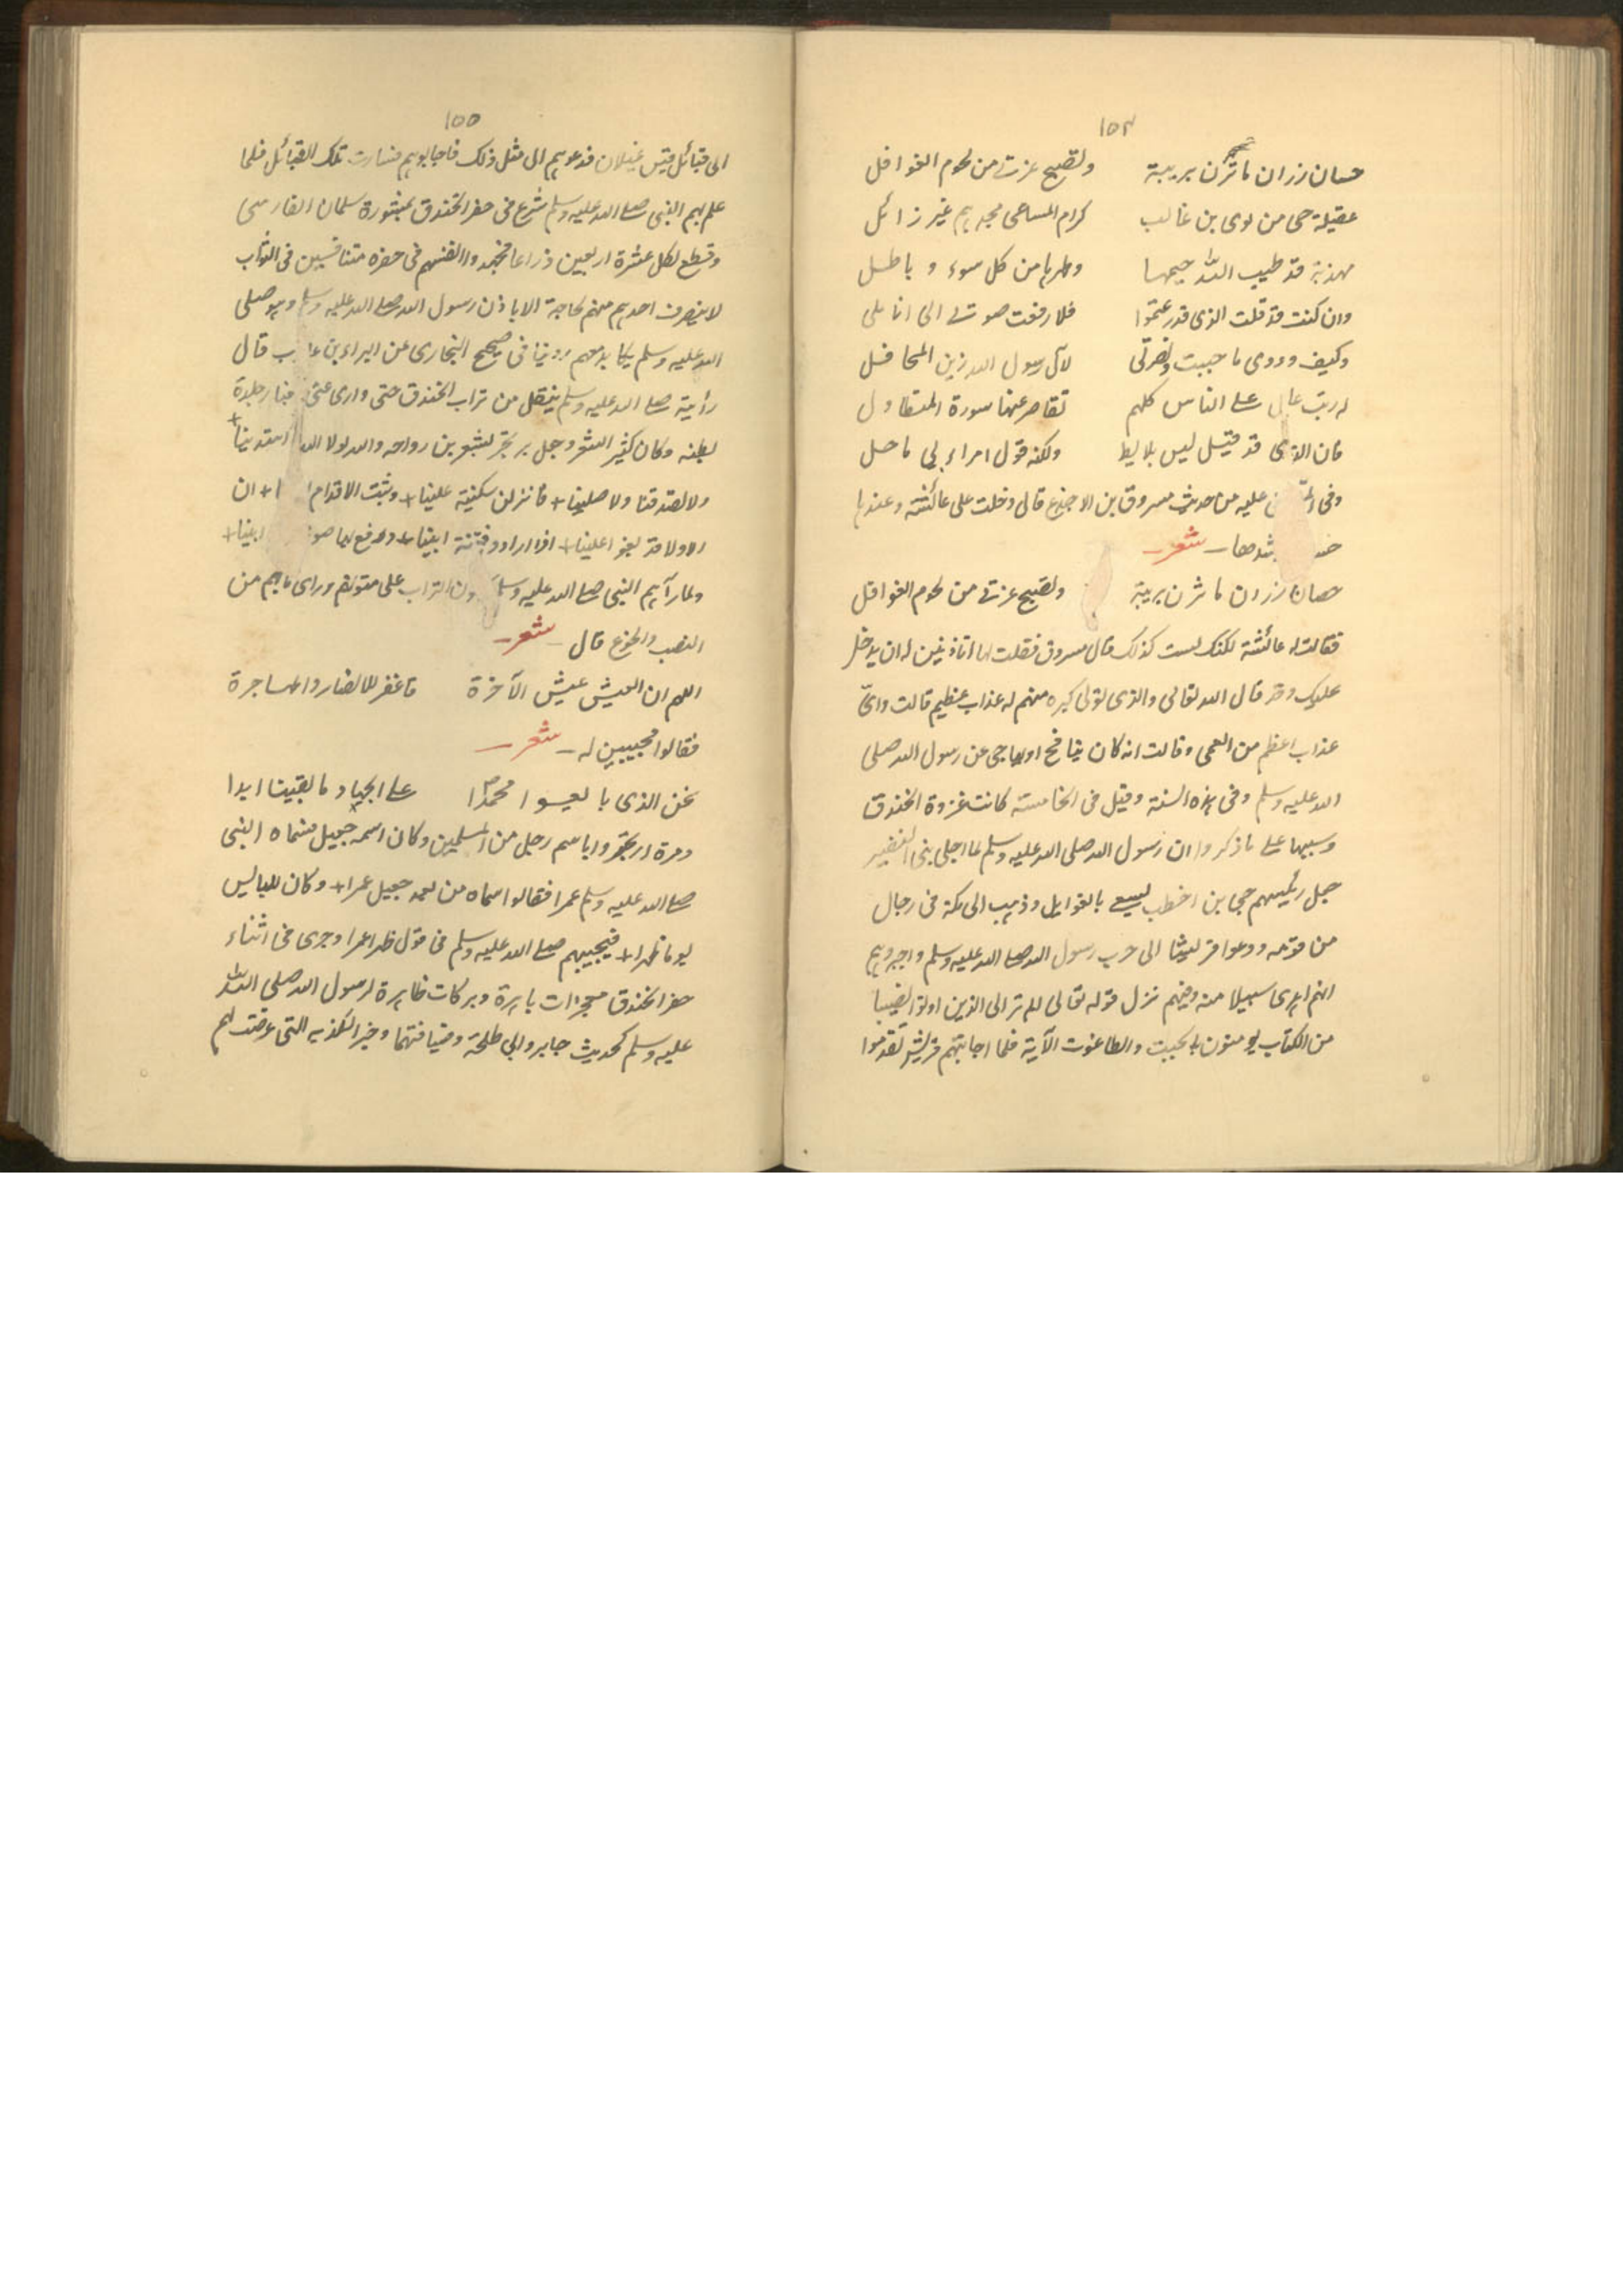 ١٥٤
حسان رزان ما تزن بريبة ولصبح عزتے من لحوم الغوافل
عقيلة حى من لوى بن غالب كرام المساعى مجدهم غير زائل
مهذبة قد طيب الله جيمها وطهرها من كل سوء و باطل
وان كنت قد قلت الذى قدر عتموا فلا رفعت صوتے الى اناملى
وكيف وودى ما حييت ونصرتى لآل رسول الله زين المحافل
له رتب عال علے الناس كلهم تقاصر عنها سورة المتطاول
فان الذى قد قيل ليس بلايط ولكنه قول امراء بى ماحل
وفى عليه من حديث مسروق بن الاجذع قال دخلت على عائشة وعندها
شدها شعر
حصان رزان ما تزن بريبة ولصبح عزتے من لحوم الغوافل
فقالت له عائشة لكنك لست كذلك قال مسروق فقلت لها اتاذنين له ان يدخل
عليك وقد قال الله تعالى والذى تولى كبره منهم له عذاب عظيم قالت واىّ
عذاب اعظم من العمى وقالت انه كان ينافح او يهاجى عن رسول الله صلى
الله عليه وسلم وفى هذه السنة وقيل فى الخامسة كانت غزوة الخندق
وسببها علے ما ذكروا ان رسول الله صلى الله عليه وسلم لما اجلى بنى النضير
جبل رئيسهم حيى بن اخطب يسعى بالغوايل وذهب الى مكة فى رجال
من قومه ودعوا قريشا الى حرب رسول الله صلے الله عليه وسلم واخبروهم
انهم اهدى سبيلا منه وفيهم نزل قوله تعالى الم تر الى الذين اوتوا نصيبا
من الكتاب يومنون بالجبت والطاغوت الآية فلما اجابتهم قريش تقدموا
١٥٥
الى قبائل قيس غيلان فدعوهم الى مثل ذلك فاجابوهم فسارت تلك القبائل فلما
علم بهم النبى صلے الله عليه وسلم شرع فى حفر الخندق بمشورة سلمان الفارسى
وقطع لكل عشرة اربعين ذراعا فجهدوا انفسهم فى حفره متنافسين فى الثواب
لا ينصرف احدهم منهم لحاجة الا باذن رسول الله صلے الله عليه وسلم وهو صلى
الله عليه وسلم يكابد معهم روينا فى صحيح البخارى عن البراء بن عا ب قال
رأيته صلے الله عليه وسلم ينقل من تراب الخندق حتى وارى عنى الغبار جلدة
بطنه وكان كثير الشعر وجل يرتجز بشعر بن رواحه والله لولا الله اهتدينا +
ولا تصدقنا ولا صلينا + فانزلن سكينة علينا + وثبت الاقدام ا + ان
الاولا قد بغوا علينا + اذا ارادوا فتنة ابينا + ورفع بها صو ابينا +
ولما رآهم النبى صلے الله عليه وسلم لون التراب على متونهم وراى ما بهم من
النصب والجوع قال شعر
اللهم ان العيش عيش الآخرة فاغفر للانصار والمهاجرة
فقالوا مجيبين له شعر
نحن الذى بايعوا محمدا علے الجهاد ما بقينا ابدا
ومرة ارتجزوا باسم رجل من المسلمين وكان اسمه جعيل فسماه النبى
صلے الله عليه وسلم عمرا فقالوا اسماه من بعد جعيل عمرا + وكان للبائس
يوما ظهرا + فيجيبهم صلے الله عليه وسلم فى قول ظهرا عمرا وجرى فى اثناء
حفر الخندق معجزات باهرة وبركات ظاهرة لرسول الله صلى الله
عليه وسلم كحديث جابر وابى طلحة وضيافتهما وخبر الكذيه التى عرضت لهم